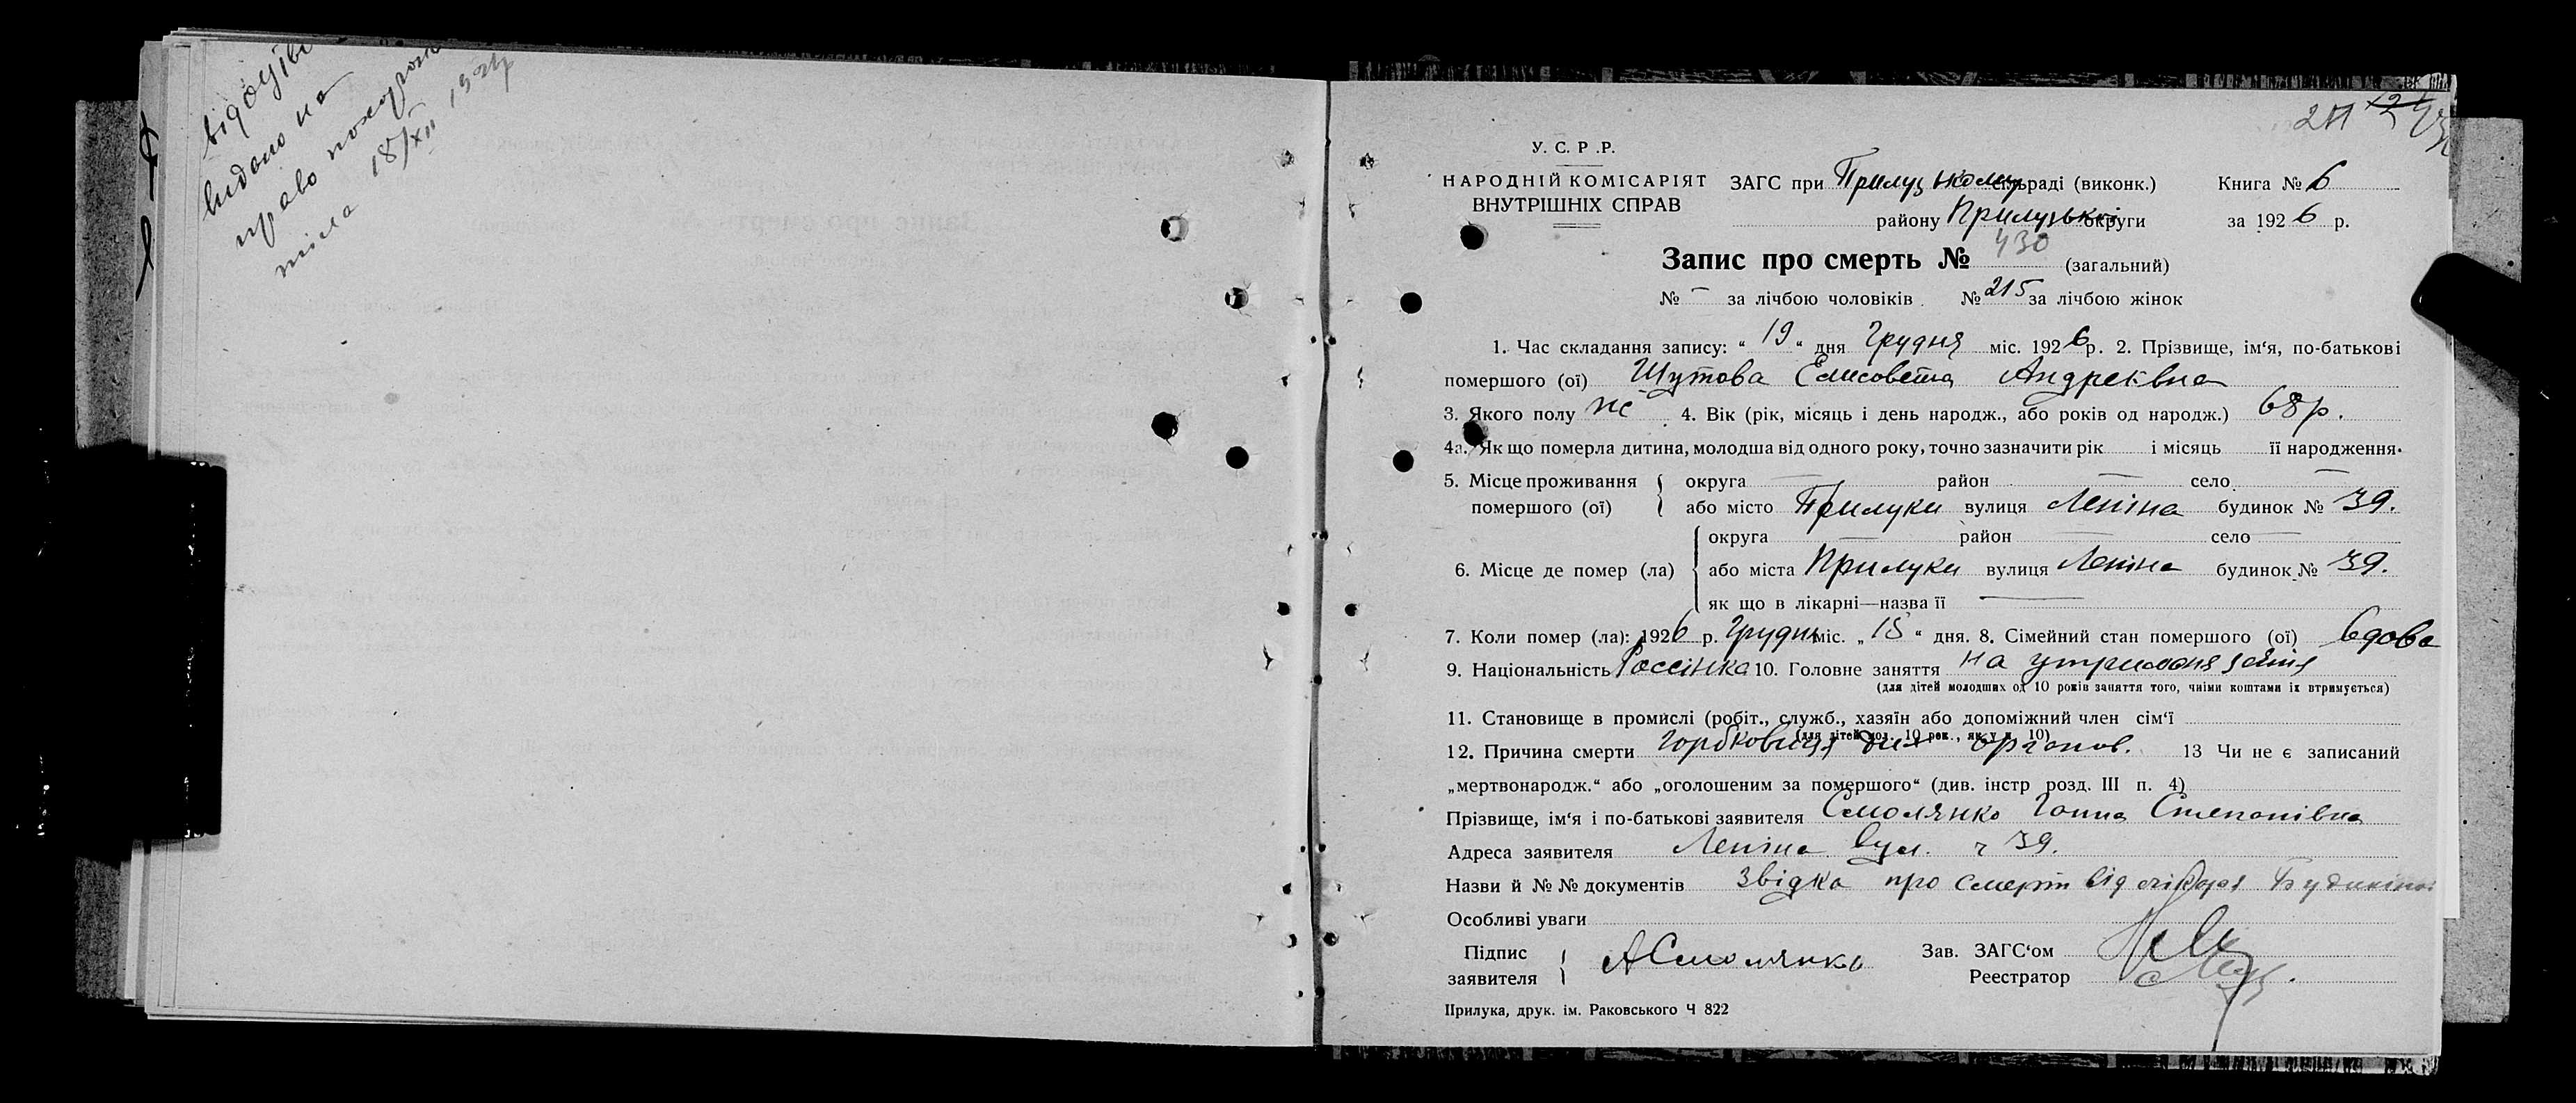 видано на
право похорон
тіла 18/XII
У. С. Р. Р.
НАРОДНІЙ КОМІСАРІЯТ
ВНУТРІШНІХ СПРАВ
ЗАГС при Прилуцькому сільраді (виконк.) Книга № 6
району Прилуцької округи за 1926 р.
Запис про смерть № 430 (загальний)
№ – за лічбою чоловіків. № 215 за лічбою жінок
1. Час складання запису: “ 19 “ дня Грудня міс. 1926 р. 2. Прізвище, ім‘я, по-батькові
помершого (ої) Шутова Елисовета Андреївна
3. Якого полу ж 4. Вік (рік, місяць і день народж., або років од народж.) 68 р.
4а. Як що померла дитина, молодша від одного року, точно зазначити рік і місяць її народження.
5. Місце проживання помершого (ої) округа — район — село —
або місто Прилуки вулиця Леніна будинок № 39.
6. Місце де помер (ла) округа — район — село —
або міста Прилуки вулиця Леніна будинок № 39.
як що в лікарні—назва її —
7. Коли помер (ла): 1926 р. Грудня міс. „ 18 “ дня. 8. Сімейний стан помершого (ої) вдова
9. Національність Россінка 10. Головне заняття на утриманя зятя
(для дітей молодших од 10 років заняття того, чиїми коштами їх втримується)
11. Становище в промислі (робіт., служб., хазяїн або допоміжний член сім‘ї
(для дітей мол. 10 рок., як у п. 10)
12. Причина смерти органов. 13 Чи не є записаний
„мертвонародж.“ або „оголошеним за помершого“ (див. інстр розд. III п. 4)
Прізвище, ім‘я і по-батькові заявителя Смолянко Ганна Степанівна
Адреса заявителя Леніна вул. ч 39.
Назви й № № документів Звідка про смерт від лікаря
Особливі уваги
Підпис заявителя АСмолянко Зав. ЗАГС‘ом
Реестратор
Прилука, друк. ім. Раковського Ч 822